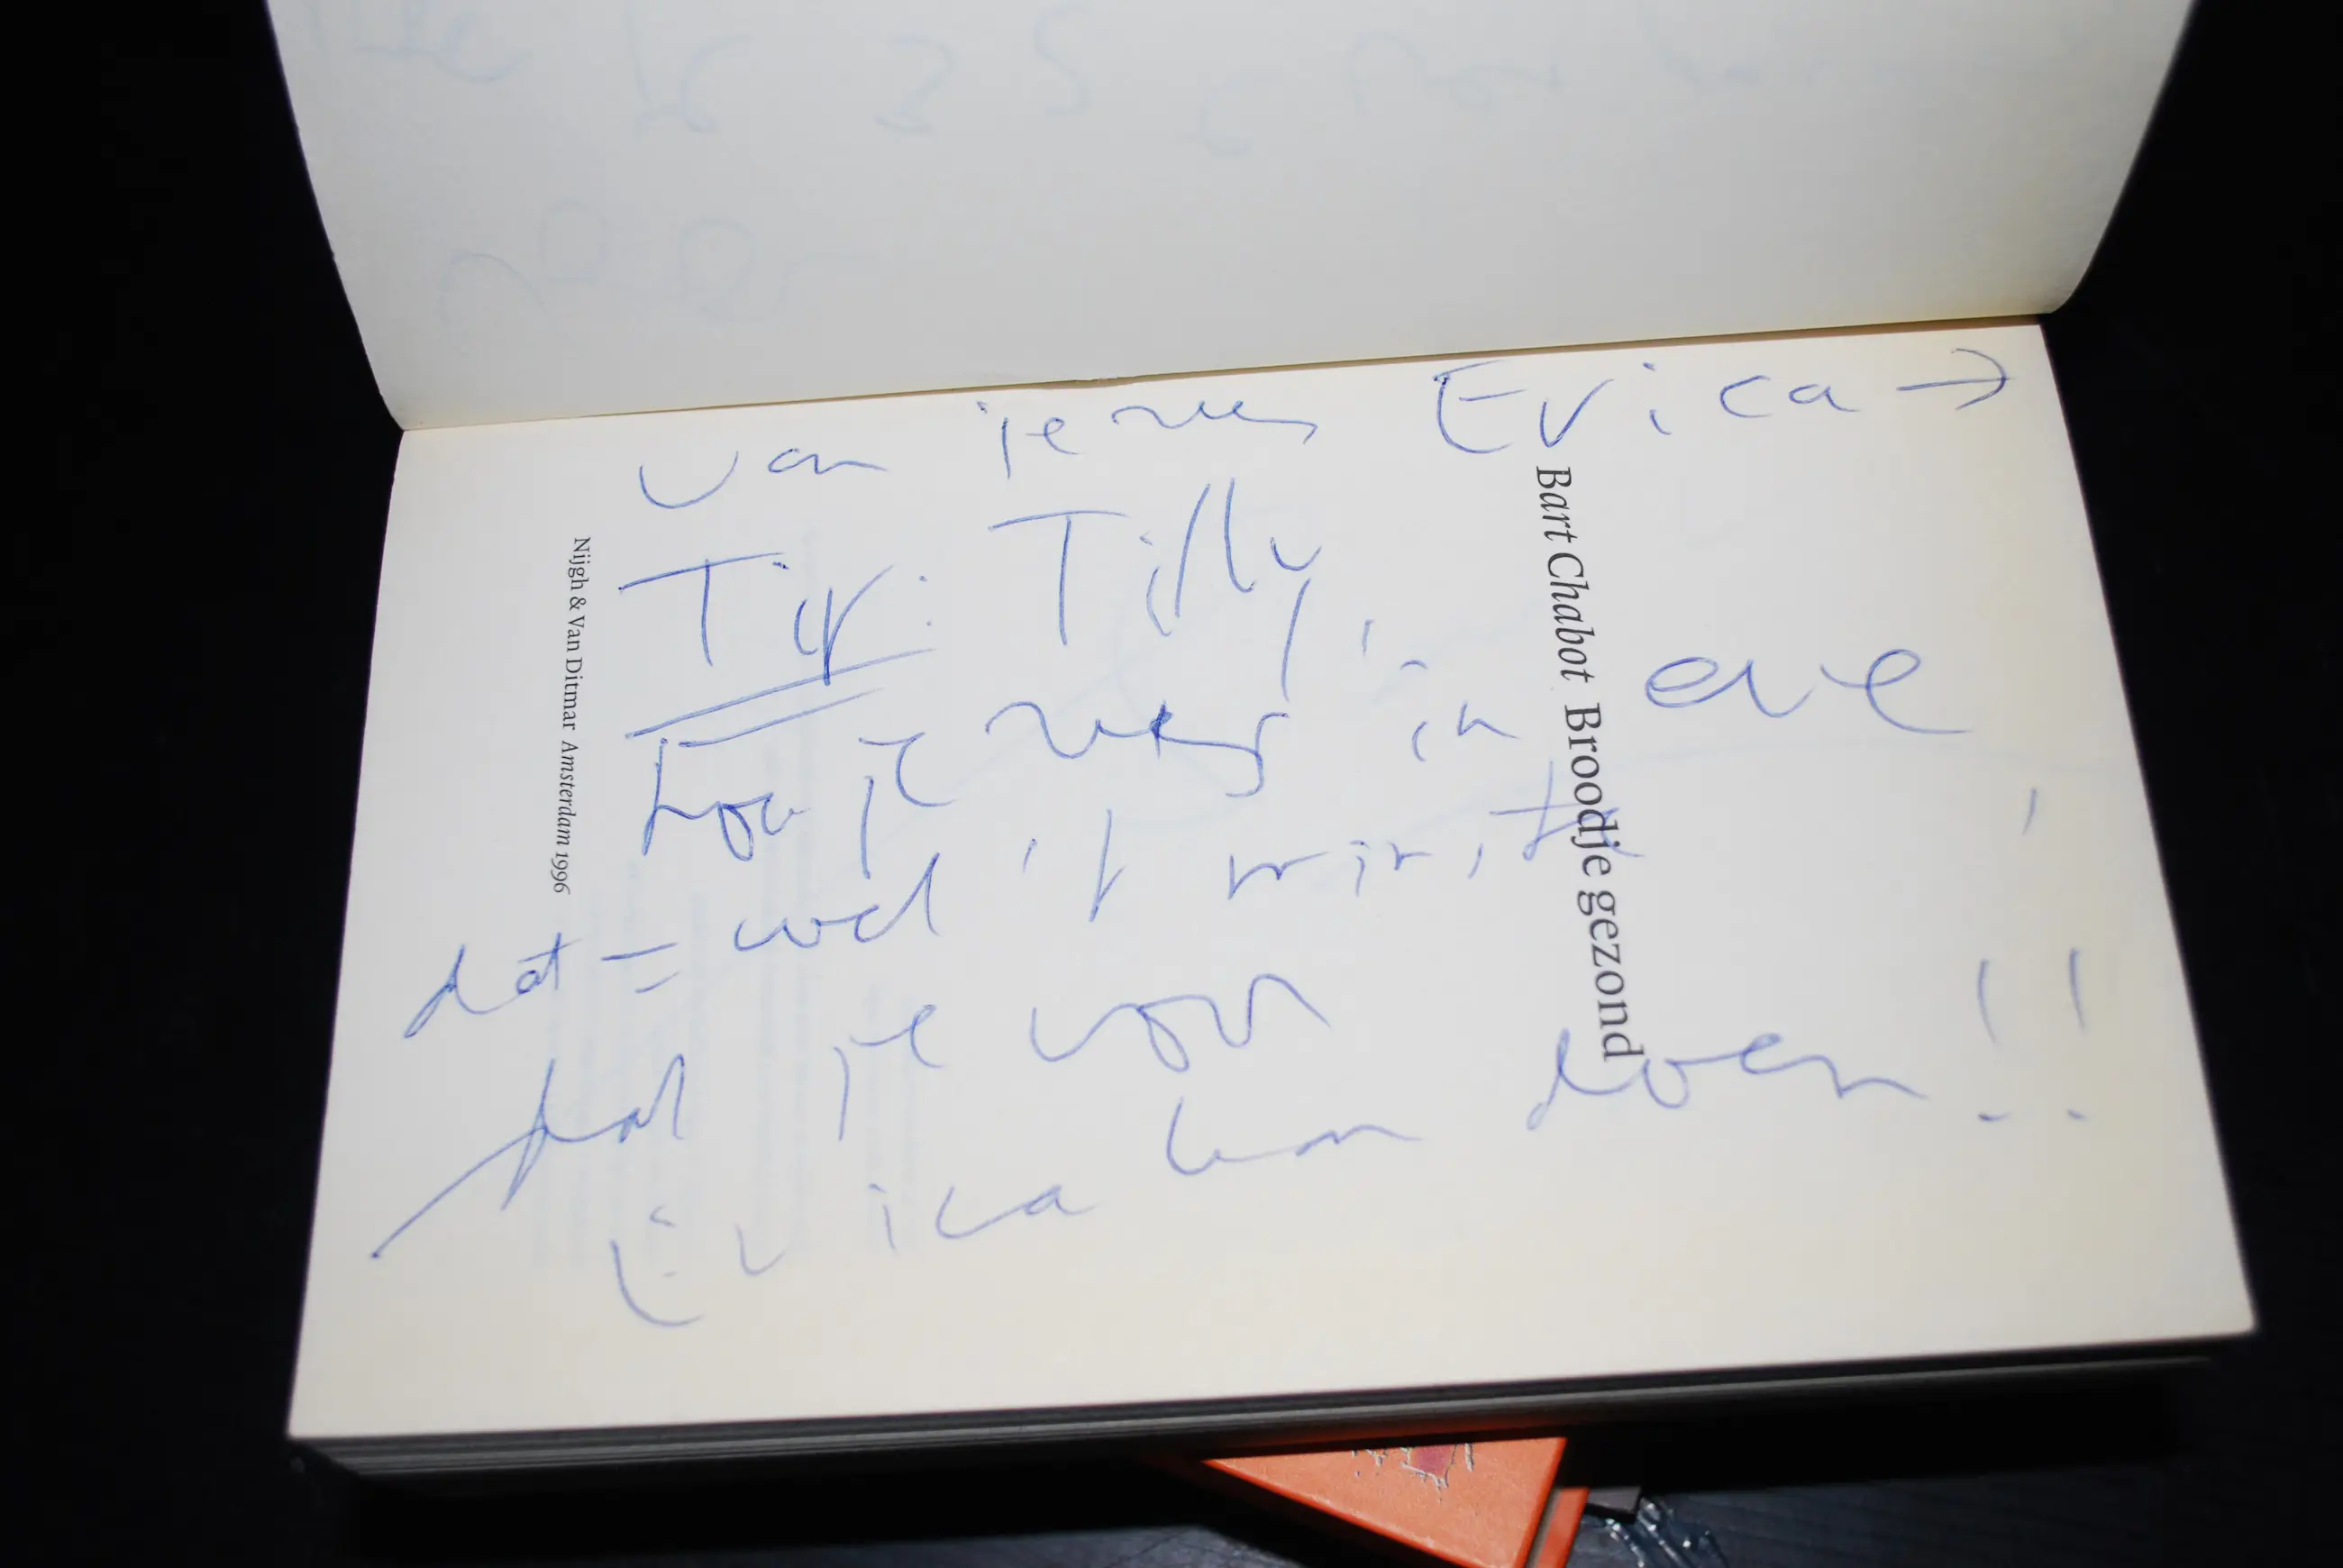 van je zus Erica →
Tip: Tilly,
hou je zus in ere,
dat = wel 't minste
dat je voor
Erica kan doen!!
Bart Chabot Broodje gezond
Nijgh & Van Ditmar Amsterdam 1996